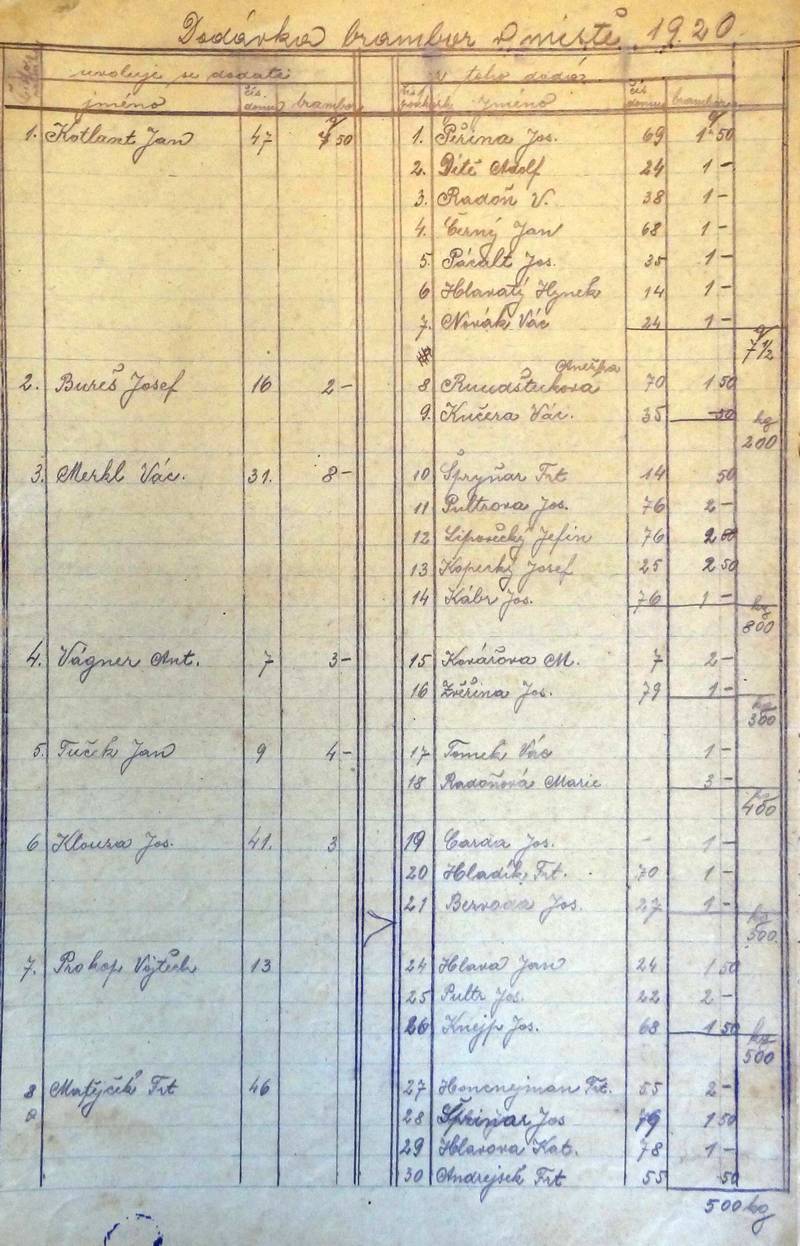 Dodávka brambor v místě 1920.
uvoluje se dodati
z toho dodá
jméno čís. domu brambor
jméno čís. domu brambor
1. Kotlant Jan 47 7 50 1. Peřina Jos. 69 1 50
2. Dítě Adolf 24 1 –
3. Radoň V. 38 1 –
4. Černý Jan 68 1 –
5. Pácalt Jos. 35 1 –
6 Hlavatý Hynek 14 1 –
7. Novák Vác 24 1 –
q 7 1/2
Anežka
2. Bureš Josef 16 2 – 8 70 1 50
9. Kučera Vác. 35 50
kg 200
3. Merkl Vác. 31. 8 – 10 Špryňar Frt 14 50
11 Pultrova Jos. 76 2 –
12 Lipovecký Jefin 76 2
13 Kopecký Josef 25 2 50
14 Kábr Jos. 76 1 –
kg 800
4. Vágner Ant. 7 3 – 15 Kovářova M. 7 2 –
16 Zvěřina Jos. 79 1 –
kg 300
5. Tuček Jan 9 4 – 17 Tomek Vác 1 –
18 Radoňová Marie 3 –
kg 400
6 Klouza Jos. 41. 3 19 Carda Jos. – 1 –
20 Hladík Frt. 70 1 –
21 Bervada Jos. 27 1 –
kg 300.
7. Prokop Vojtěch 13 24 Hlava Jan 24 1 50
25 Pultr Jos. 22 2 –
26 Knejp Jos. 68 1 50
kg 500
8 Matějček Frt 46 27 Honcnejman Frt. 55 2 –
28 Špriňar Jos 79 1 50
29 Hlavova Kat. 78 1 –
30 Andrejsek Frt 55 50
500 kg